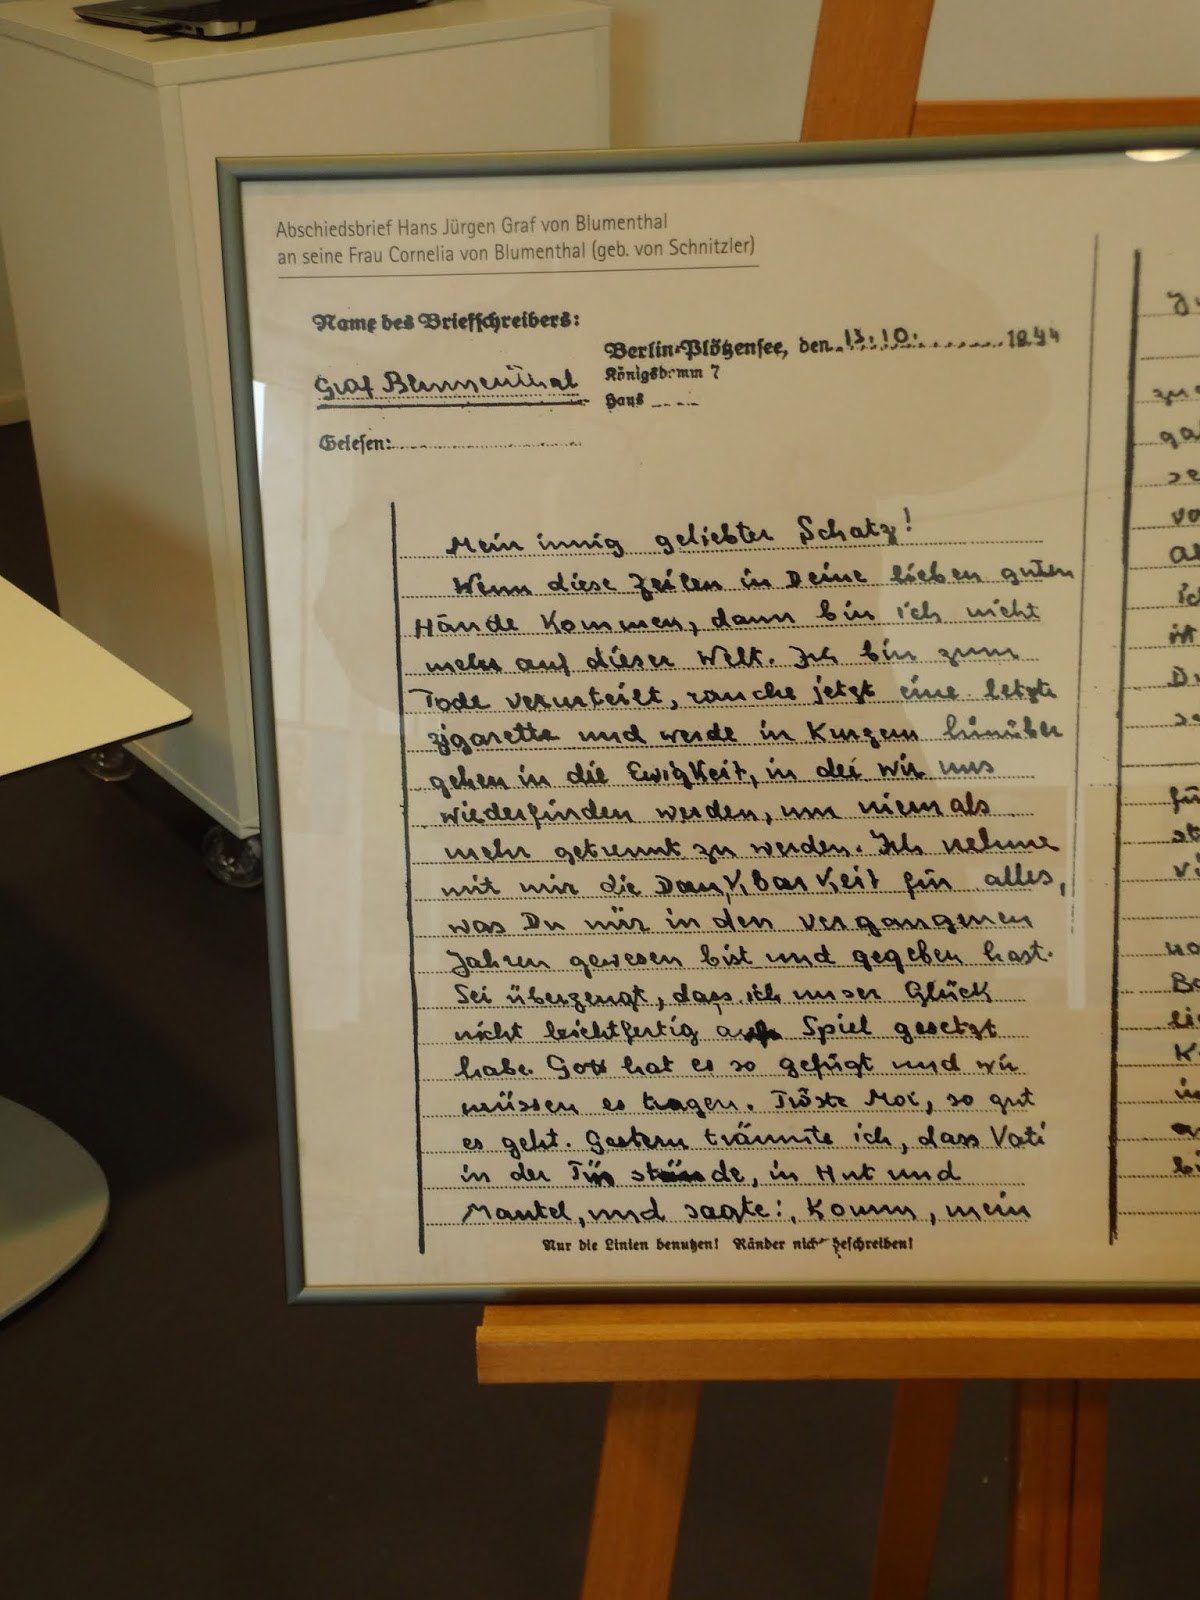 Abschiedsbrief Hans Jürgen Graf von Blumenthal
an seine Frau Cornelia von Blumenthal (geb. von Schnitzler)
Name des Briefschreibers:
Berlin-Plötzensee, den 13.10. 1944
Graf Blumenthal
Königsdamm 7
Haus
Gelesen:
Mein innig geliebter Schatz!
Wenn diese Zeilen in Deine lieben guten
Hände kommen, dann bin ich nicht
mehr auf dieser Welt. Ich bin zum
Tode verurteilt, rauche jetzt eine letzte
Zigarette und werde in Kurzem hinüber
gehen in die Ewigkeit, in der wir uns
wiederfinden werden, um niemals
mehr getrennt zu werden. Ich nehme
mit mir die Dankbarkeit für alles,
was Du mir in den vergangenen
Jahren gewesen bist und gegeben hast.
Sei überzeugt, dass ich unser Glück
nicht leichtfertig aufs Spiel gesetzt
habe. Gott hat es so gefügt und wir
müssen es tragen. Tröste Moi, so gut
es geht. Gestern träumte ich, dass Vati
in der Tür stände, in Hut und
Mantel, und sagte: Komm, mein
Nur die Linien benutzen! Ränder nicht beschreiben!